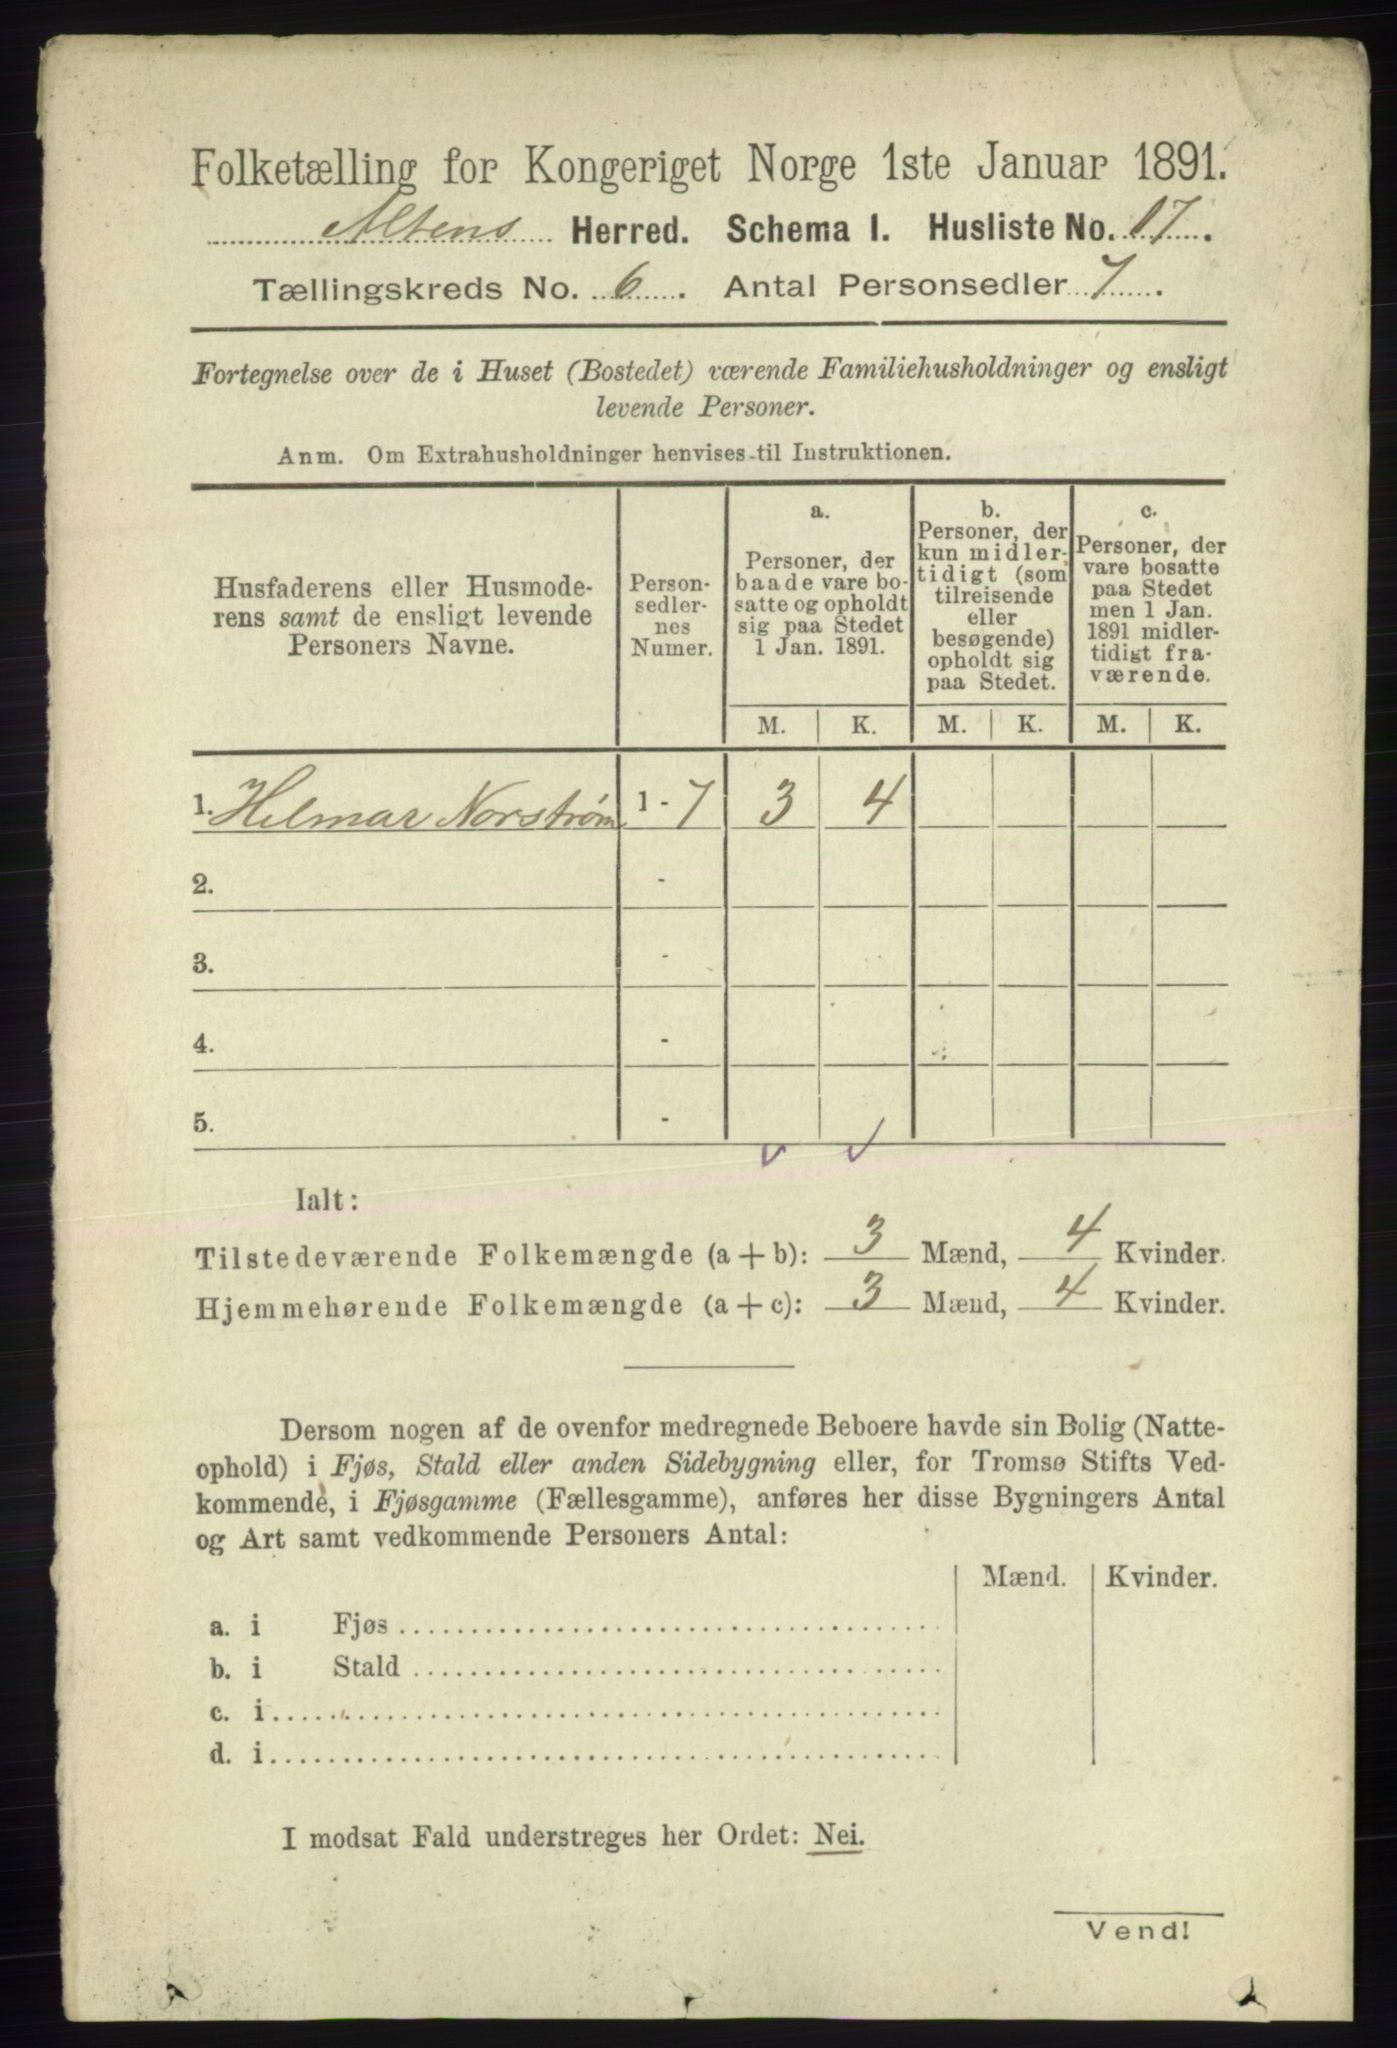 Folketælling for Kongeriget Norge 1ste Januar 1891.
Altens Herred. Schema I. Husliste No. 17.
Tællingskreds No. 6. Antal Personsedler 7.
Fortegnelse over de i Huset (Bostedet) værende Familiehusholdninger og ensligt
levende Personer.
Anm. Om Extrahusholdninger henvises til Instruktionen.
Husfaderens eller Husmode-
rens samt de ensligt levende
Personers Navne.
Person-
sedler-
nes
Numer.
a.
Personer, der
baade vare bo-
satte og opholdt
sig paa Stedet
1 Jan. 1891.
b.
Personer, der
kun midler-
tidigt (som
tilreisende
eller
besøgende)
opholdt sig
paa Stedet.
c.
Personer, der
vare bosatte
paa Stedet
men 1 Jan.
1891 midler-
tidigt fra-
værende.
M. K. M. K. M. K.
1. Helmar Norstrøm 1 - 7 3 4
2. -
3. -
4. -
5. -
Ialt:
Tilstedeværende Folkemængde (a + b): 3 Mænd, 4 Kvinder.
Hjemmehørende Folkemængde (a + c): 3 Mænd, 4 Kvinder.
Dersom nogen af de ovenfor medregnede Beboere havde sin Bolig (Natte-
ophold) i Fjøs, Stald eller anden Sidebygning eller, for Tromsø Stifts Ved-
kommende, i Fjøsgamme (Fællesgamme), anføres her disse Bygningers Antal
og Art samt vedkommende Personers Antal:
Mænd. Kvinder.
a. i Fjøs
b. i Stald
c. i
d. i
I modsat Fald understreges her Ordet: Nei.
Vend!